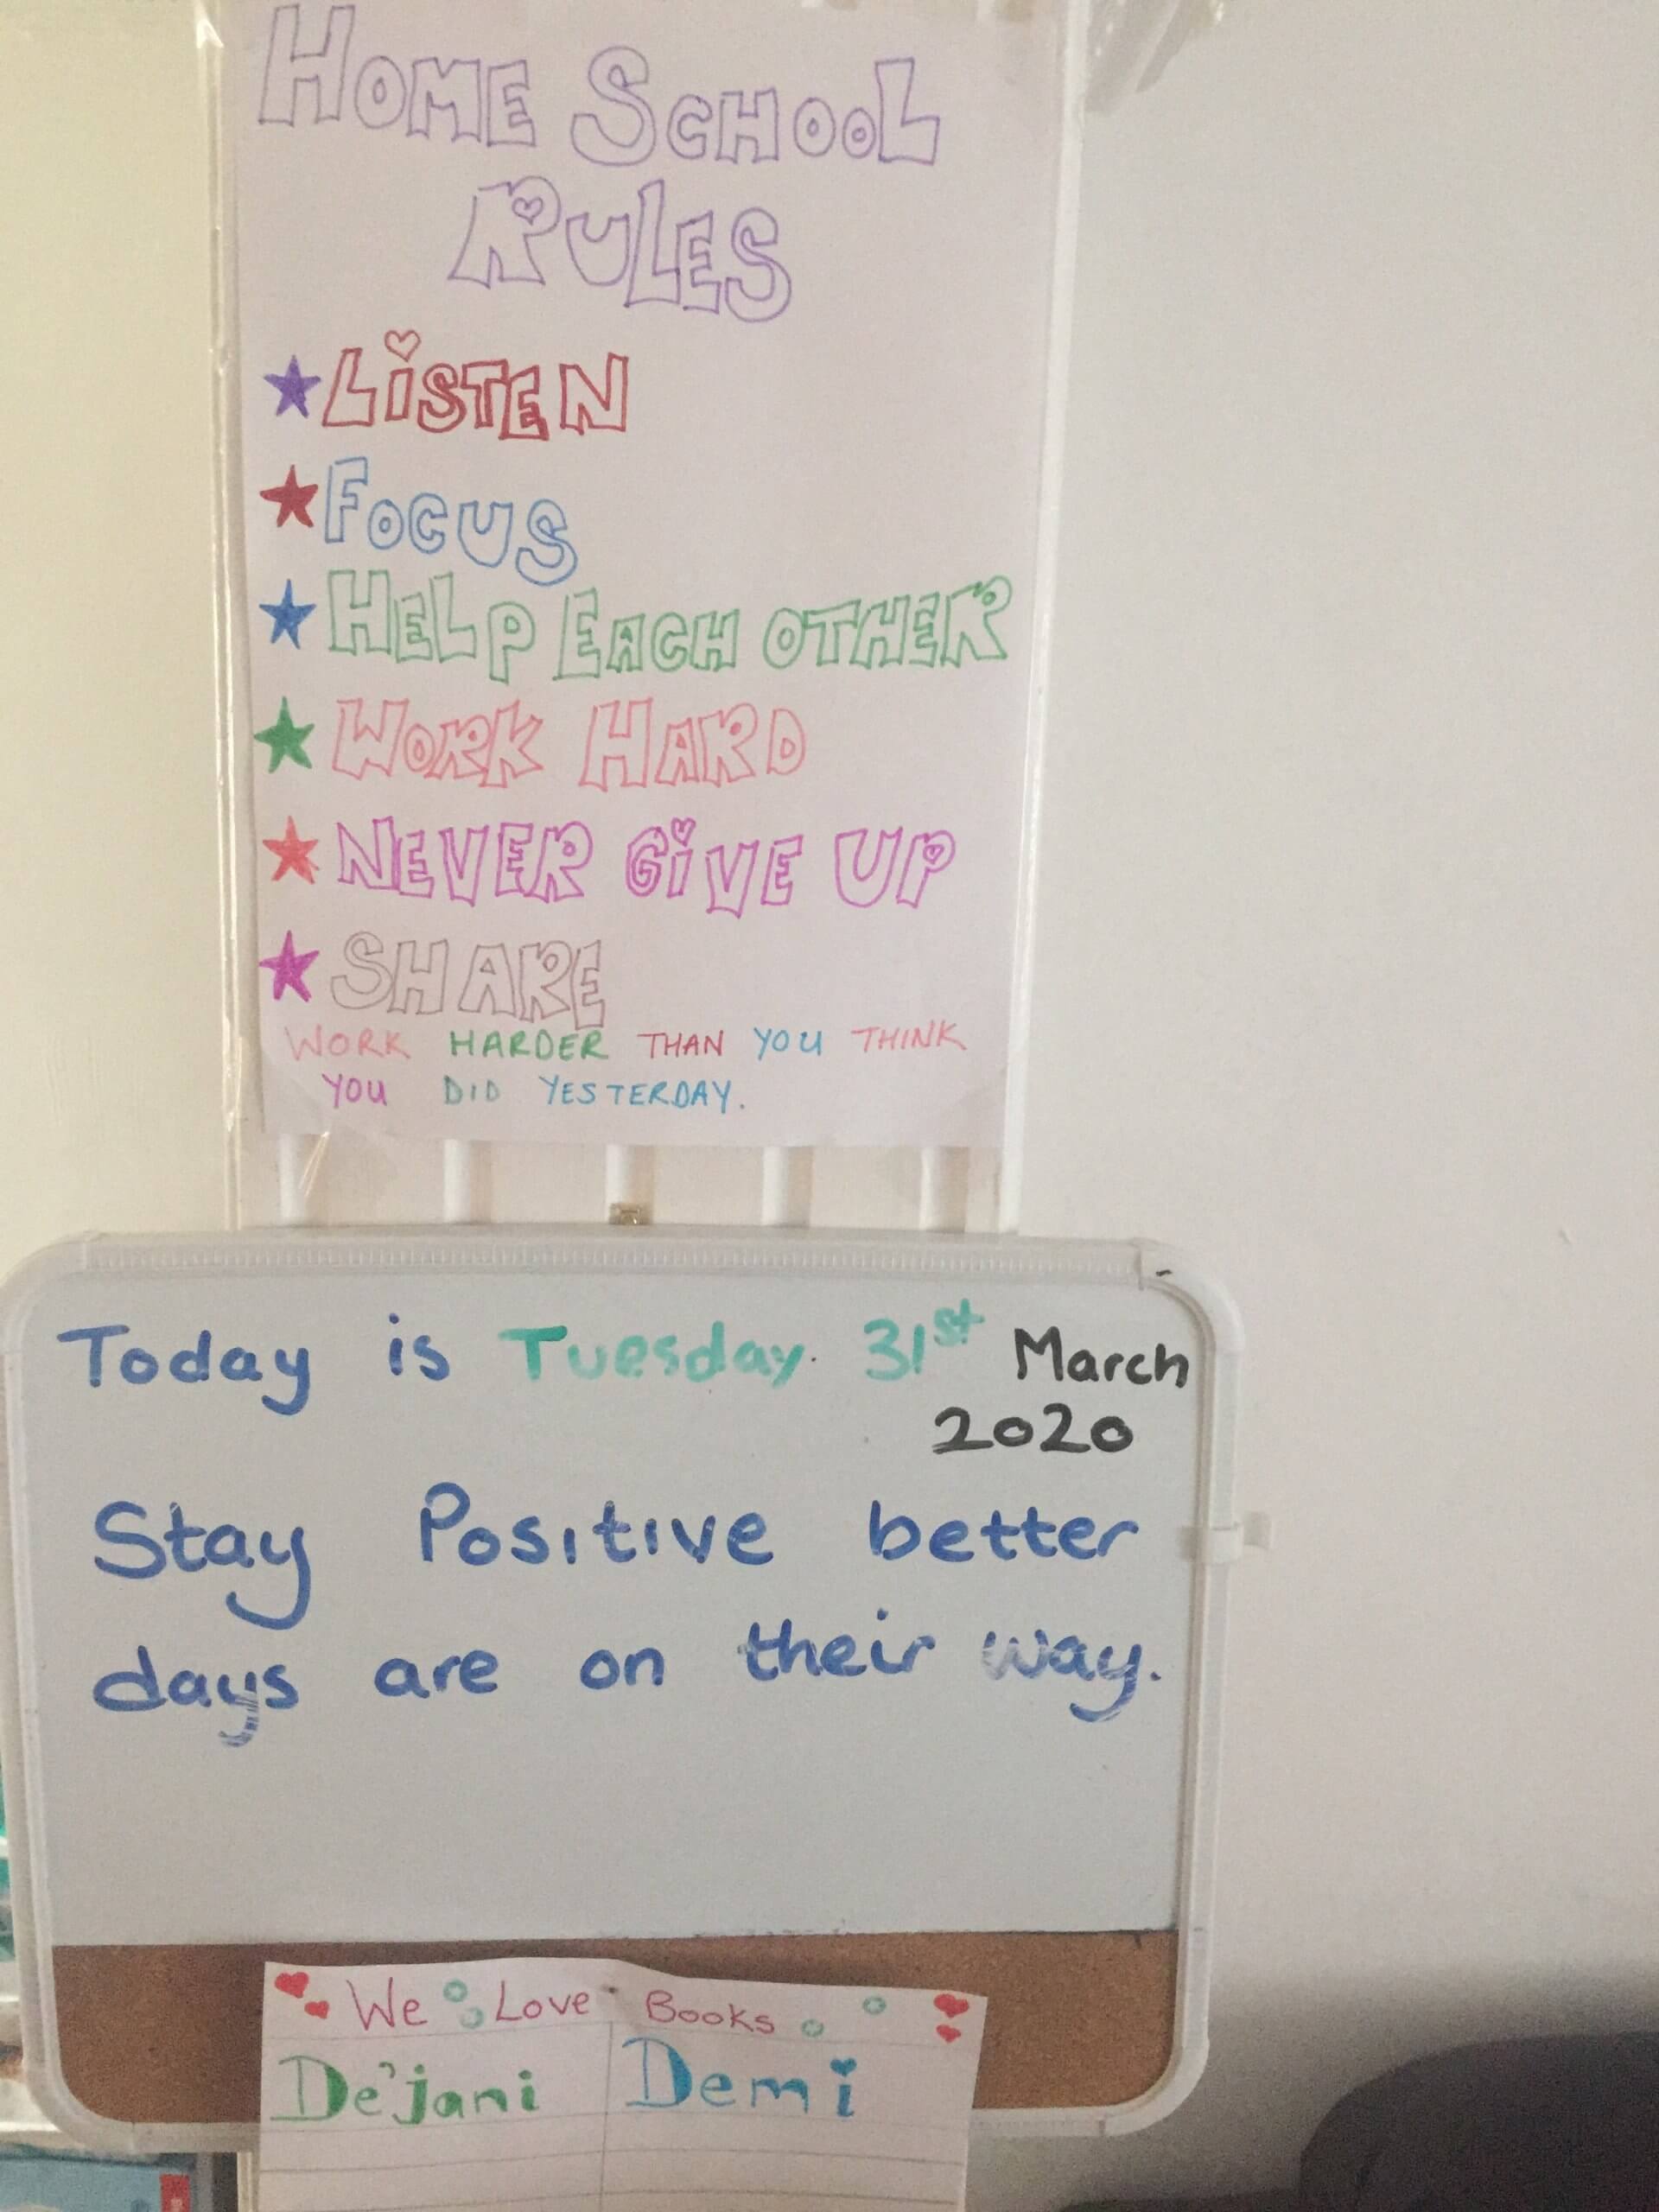 HOME SCHOOL
RULES
LiSTEN
FOCUS
HELP EACH OTHER
WORK HARD
NEVER GiVE UP
SHARE
WORK HARDER THAN YOU THINK
YOU DID YESTERDAY.
Today is Tuesday. 31st March
2020
Stay Positive better
days are on their way.
We Love Books
De'jani Demi